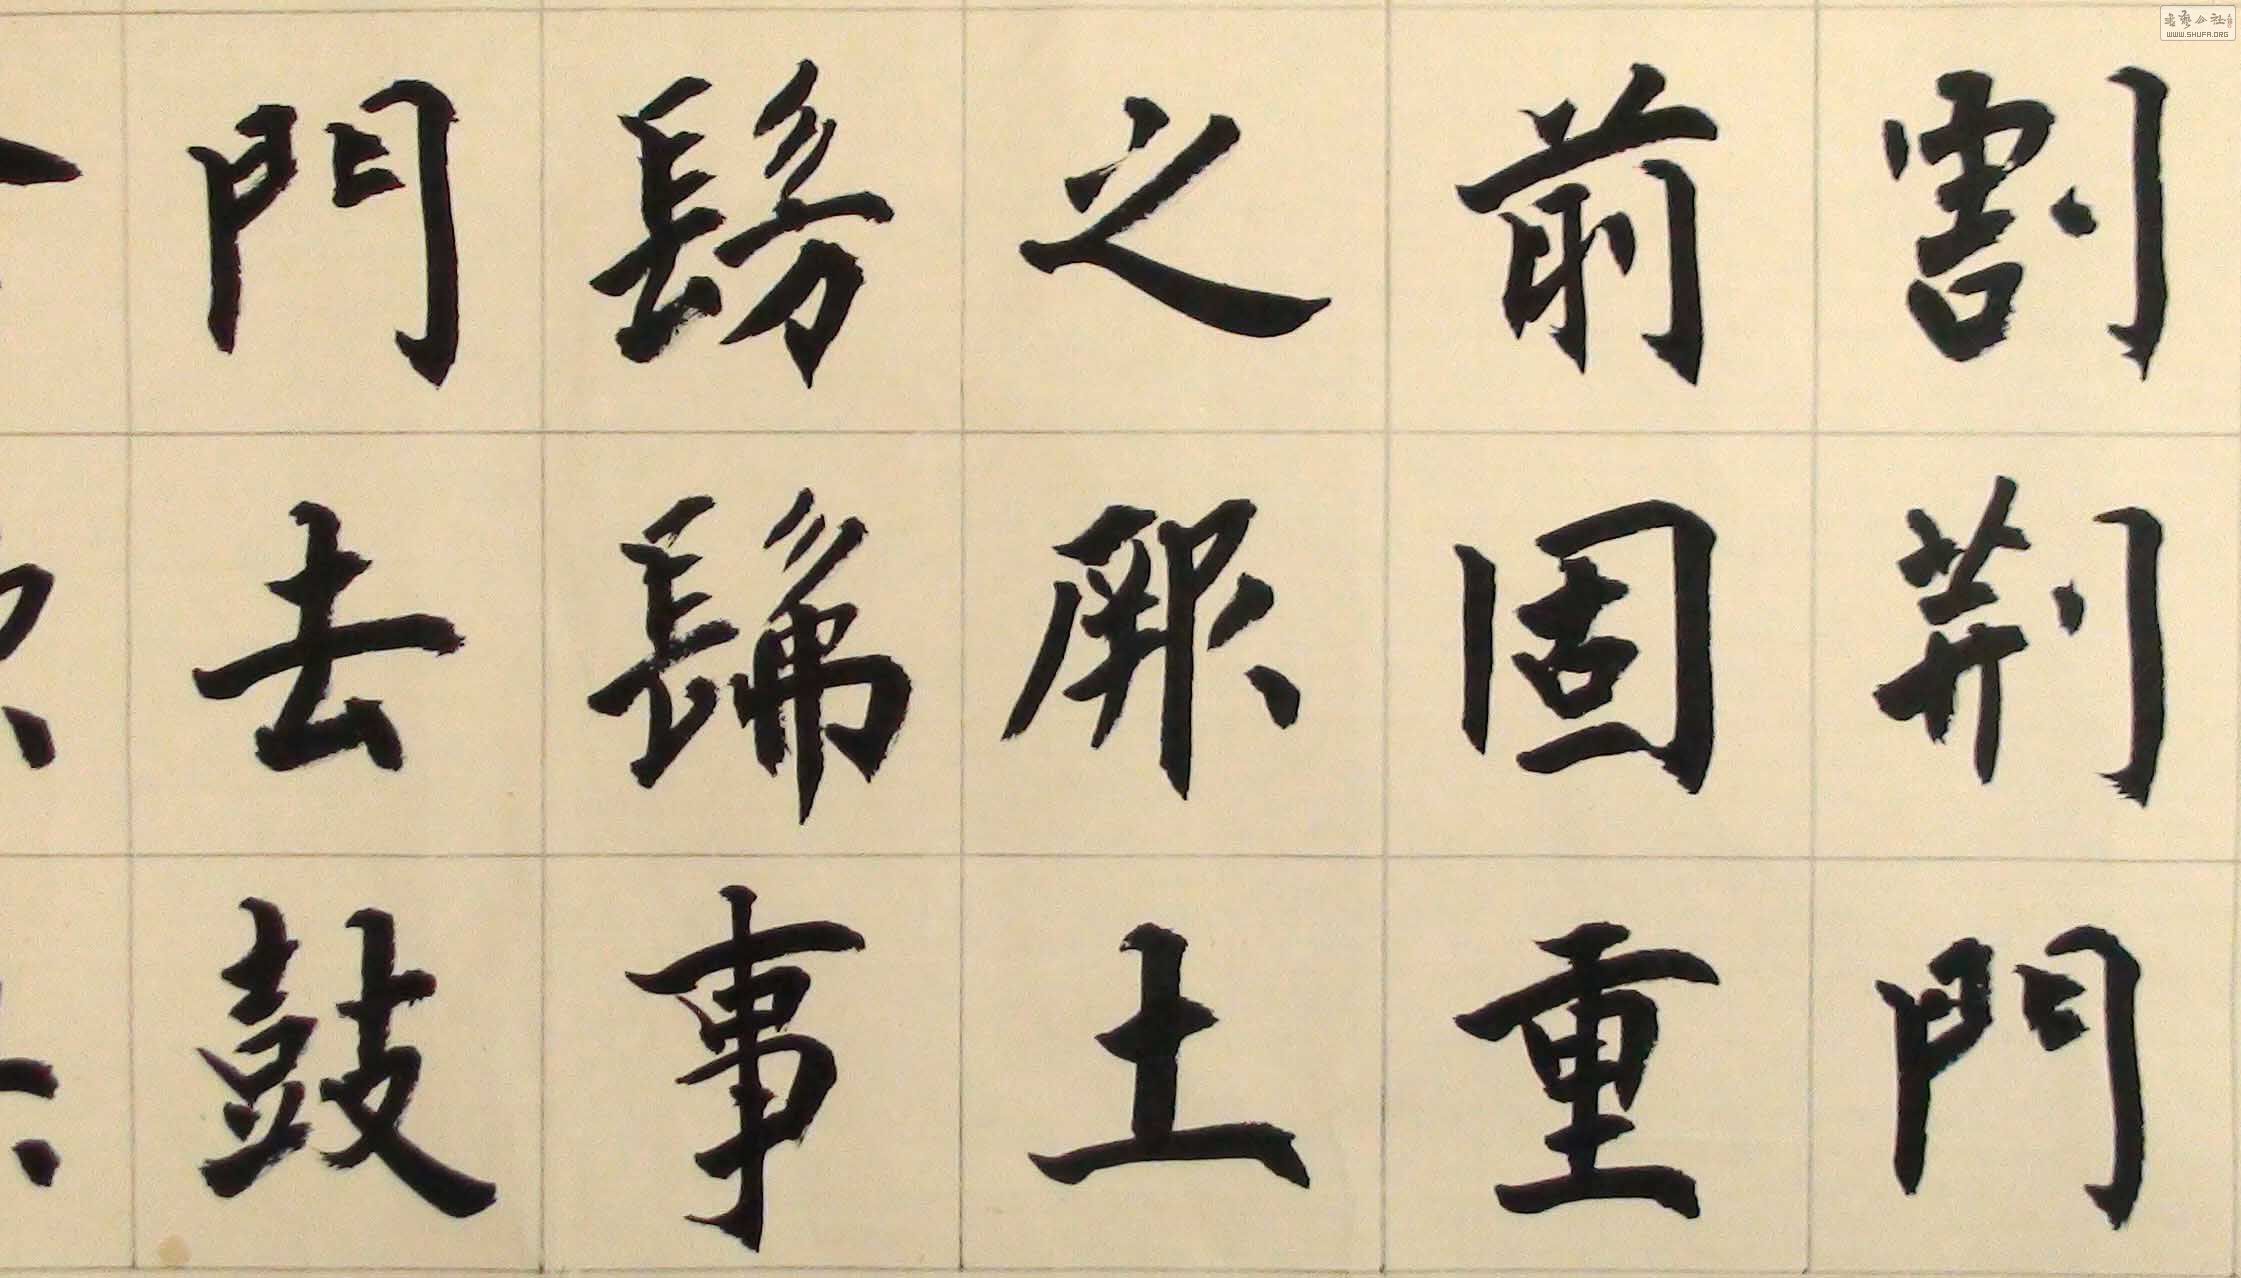 割荆門
前固重
之厥土
髣髴事
門去鼓
书艺公社
WWW.SHUFA.ORG